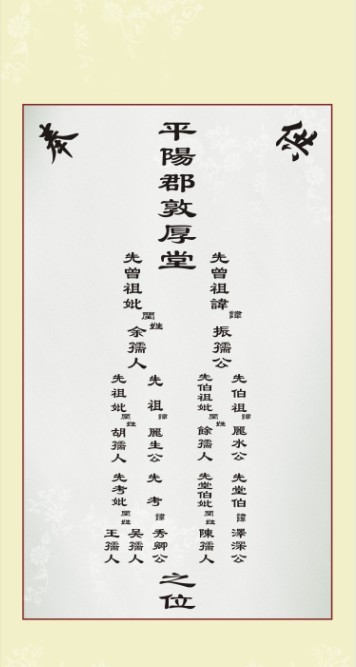 奉
平陽郡敦厚堂
先曾祖諱諱振孺公
先曾祖妣閨姓余孺人
先伯祖諱麗水公
先伯祖妣閨姓餘孺人
先祖諱麗生公
先祖妣閨姓胡孺人
先堂伯諱澤深公
先堂伯妣閨姓陳孺人
先考諱秀卿公
先考妣閨姓吳孺人
王孺人
之位